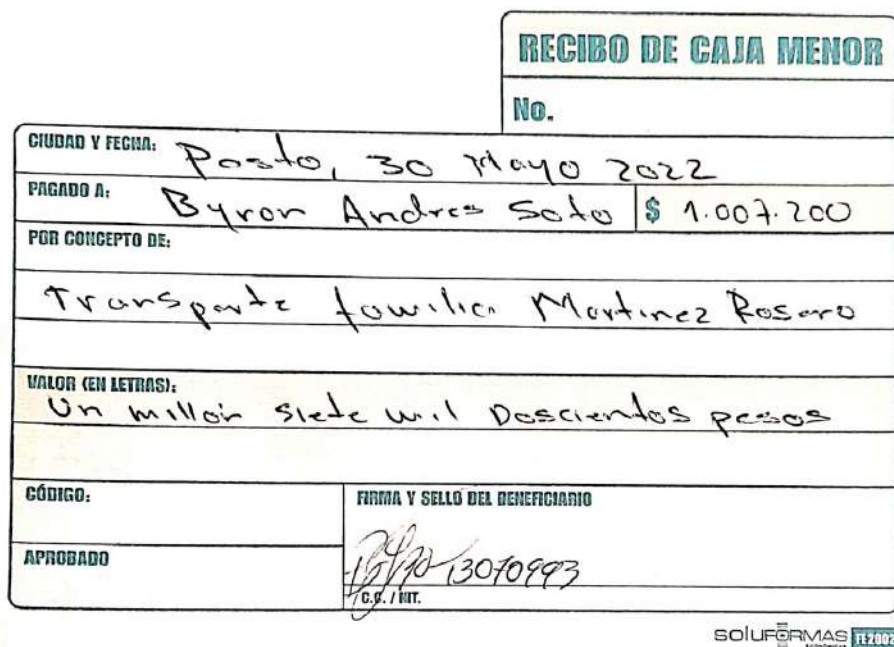 RECIBO DE CAJA MENOR
No.
CIUDAD Y FECHA: Pasto, 30 Mayo 2022
PAGADO A: Byron Andres Soto $ 1.007.200
POR CONCEPTO DE:
Transporte familia Martinez Rosero
VALOR (EN LETRAS):
Un millón siete mil Doscientos pesos
CÓDIGO:
FIRMA Y SELLO DEL BENEFICIARIO
APROBADO
13070993
C.C. / NIT.
SOLUFORMAS FE2002